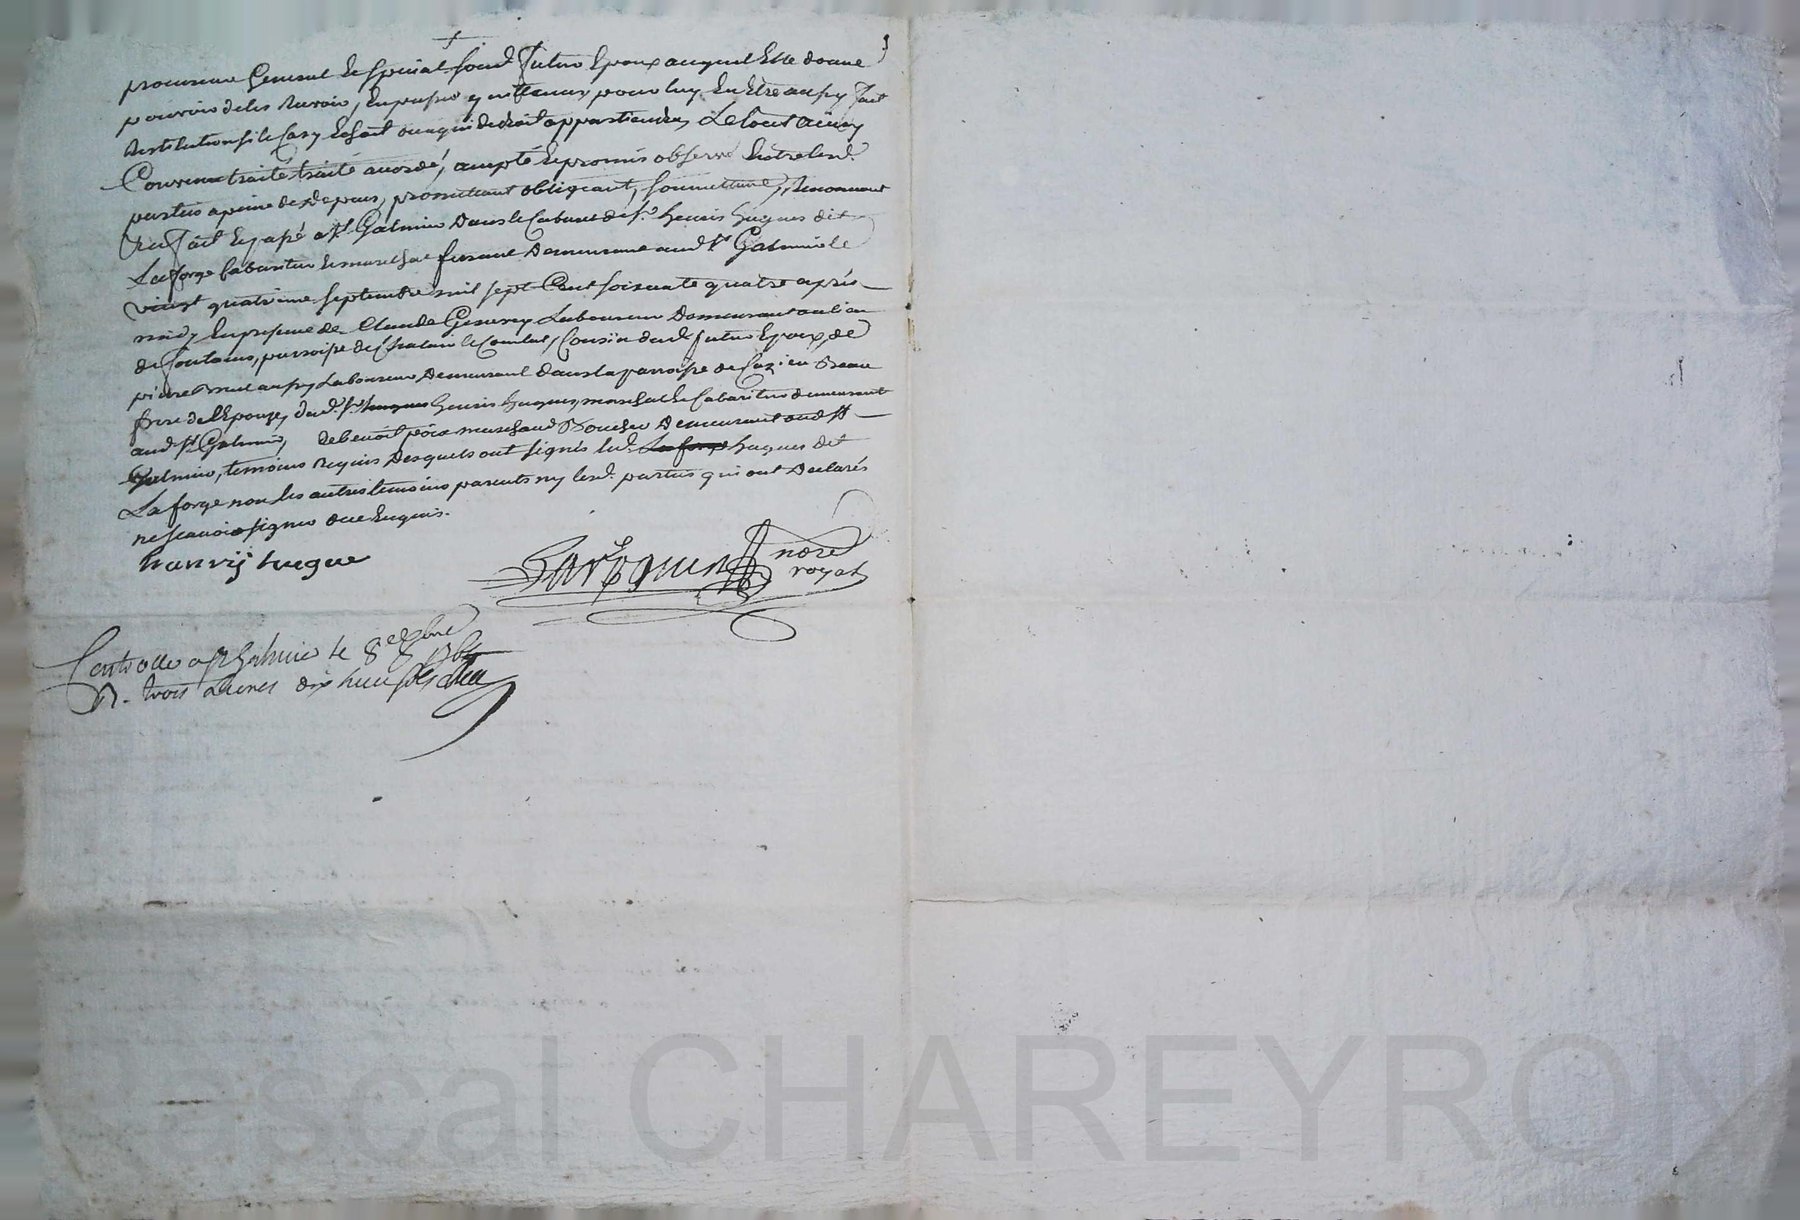 procureur General Et special sond. futur Epoux auquel Elle donne
pouvoir de les recevoir, En passer quittances pour luy En Etre aussy fait
restitution si le Cas y Echoit ou a qui de droit appartiendra, Le tout ainsy
Convenu traité traité accordé, accepté Et promis observé Entre lesd.
parties a peine de depens, promettant obligeant, soumettant, Renonçant
fait Et passé a St Galmier Dans le Cabaret de Sr henris hugues dit
Laforge Cabaretier Et marechal ferrant Demeurant aud St Galmier le
vingt quatrieme septembre mil sept Cent soixante quatre après
midy En presence de Claude Laboureur Demeurant au lieu
de parroisse de Chalain le Comtal, Cousin dud. futur Epoux, de
pierre Laboureur Demeurant dans la parroisse de Beau
frere de l'Epouze, dud. Sr hugues henris hugues marechal Et Cabaretier demeurant
aud St Galmier, Et benoit marchand Boucher Demeurant aud St
Galmier, temoins requis Desquels ont signés led. Laforge hugues dit
Laforge non les autres temoins parents ny lesd. parties qui ont Declarés
ne scavoir signer de ce Enquis.
hanrij hugue
nore
royal
Controllé a St Galmier le 8e 8bre 1764
R. trois Livres dix huit sols
Pascal CHAREYRON